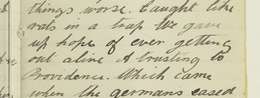 things worse. Caught like
rats in a trap we gave
up hope of ever getting
out alive. A trusting to
Providence. Which came
when the germans eased